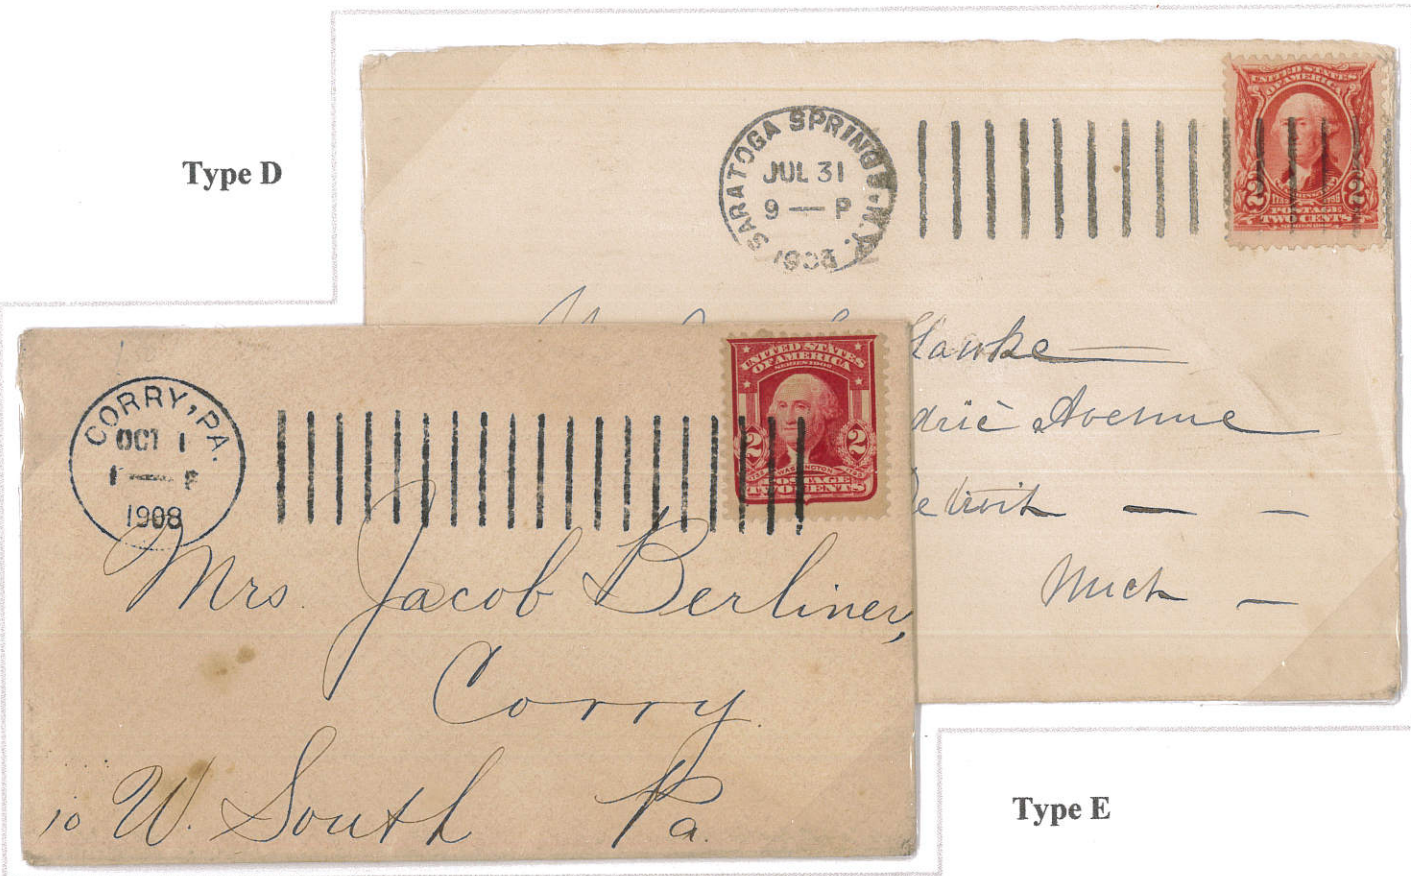 Type D
SARATOGA SPRINGS, N.Y.
JUL 31
9 — P
UNITED STATES
OF AMERICA
2 2
POSTAGE
TWO CENTS
Hawke
Avenue
Detroit — —
Mich —
CORRY, PA.
OCT 1
1908
UNITED STATES
OF AMERICA
SERIES 1902
2 2
WASHINGTON
POSTAGE
TWO CENTS
Mrs. Jacob Berliner,
Corry.
10 W. South Pa.
Type E